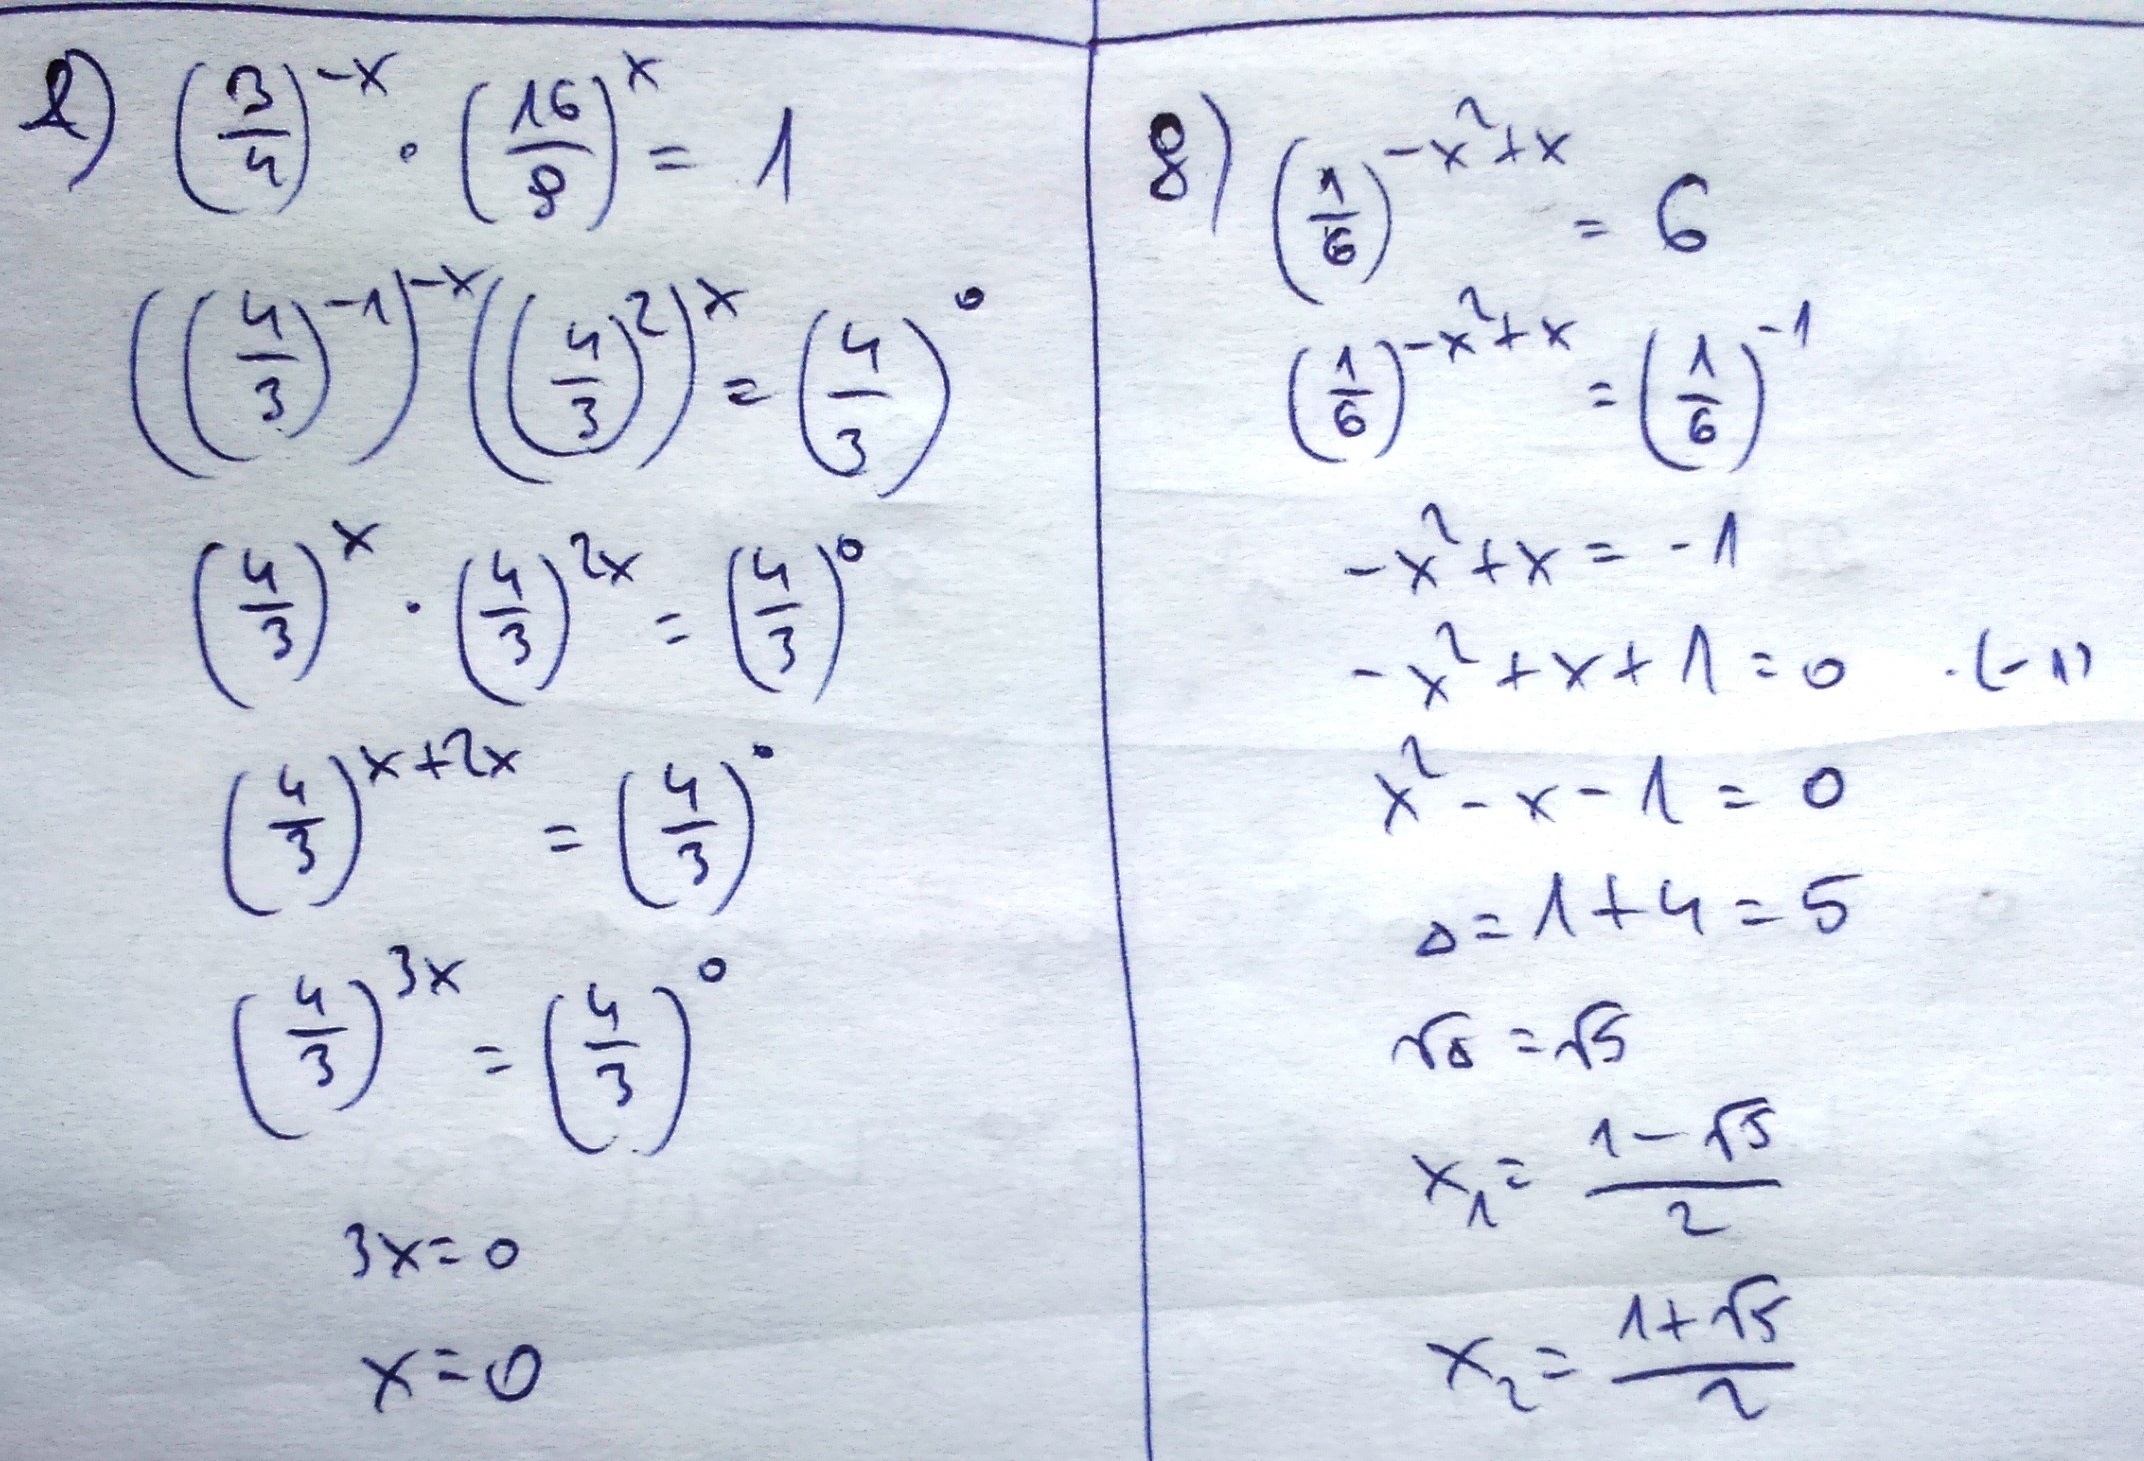 2) (3/4)^-x · (16/9)^x = 1
((4/3)^-1)^-x ((4/3)^2)^x = (4/3)^0
(4/3)^x · (4/3)^2x = (4/3)^0
(4/3)^x+2x = (4/3)^0
(4/3)^3x = (4/3)^0
3x=0
x=0
8) (1/6)^-x²+x = 6
(1/6)^-x²+x = (1/6)^-1
-x²+x = -1
-x²+x+1=0 ·(-1)
x²-x-1=0
Δ=1+4=5
√Δ=√5
x₁= 1-√5/2
x₂= 1+√5/2